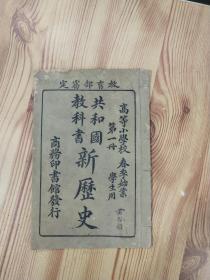 教育部審定
高等小學校 春季始業
第一冊 學生用
共和國
教科書
新歷史
商務印書館發行